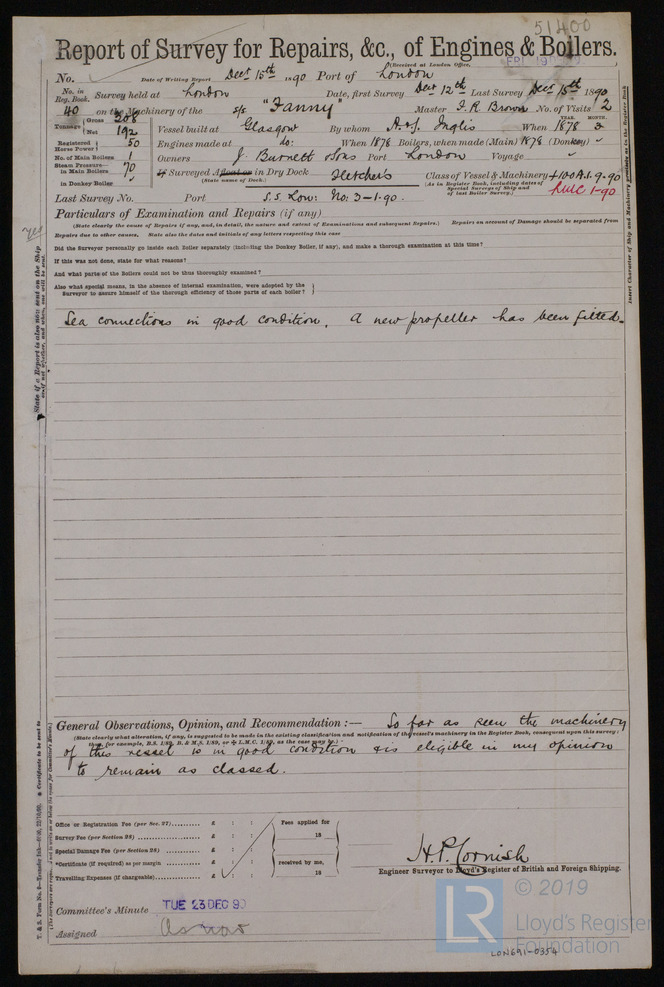 51400
Report of Survey for Repairs, &c., of Engines & Boilers.
(Received at London Office,
No. Date of Writing Report Decr 15th 1890 Port of London
No. in Reg. Book. Survey held at London Date, first Survey Decr 12th Last Survey Decr 15th 1890
40 on the Machinery of the s/s "Fanny" Master J. R. Brown No. of Visits 2
Tonnage Gross 308
Net 192
Vessel built at Glasgow By whom A. & J. Inglis When YEAR. 1878 MONTH. 3
Registered Horse Power 50 Engines made at do: When 1878 Boilers, when made (Main) 1878 (Donkey) "
No. of Main Boilers 1 Owners J. Burnett & Sons Port London Voyage
Steam Pressure— in Main Boilers 70 If Surveyed Afloat or in Dry Dock Fletchers Class of Vessel & Machinery +100A1. 9-90
in Donkey Boiler " (State name of Dock.) (As in Register Book, including dates of Special Surveys of Ship and of last Boiler Survey.) LMC 1-90
Last Survey No. Port S.S. Low: No: 3-1-90.
Particulars of Examination and Repairs (if any)
(State clearly the cause of Repairs if any, and, in detail, the nature and extent of Examinations and subsequent Repairs.) Repairs on account of Damage should be separated from
Repairs due to other causes. State also the dates and initials of any letters respecting this case
Did the Surveyor personally go inside each Boiler separately (including the Donkey Boiler, if any), and make a thorough examination at this time?
If this was not done, state for what reasons?
And what parts of the Boilers could not be thus thoroughly examined?
Also what special means, in the absence of internal examination, were adopted by the
Surveyor to assure himself of the thorough efficiency of those parts of each boiler?
Sea connections in good condition. A new propeller has been fitted.
General Observations, Opinion, and Recommendation:— So far as seen the machinery
(State clearly what alteration, if any, is suggested to be made in the existing classification and notification of the vessel's machinery in the Register Book, consequent upon this survey;
thus, for example, B.S. 1/89, B. & M.S. 1/89, or + L.M.C. 1/89, as the case may be.)
of this vessel is in good condition & is eligible in my opinion
to remain as classed.
Office or Registration Fee (per Sec. 27) £ : : Fees applied for
Survey Fee (per Section 28) £ : : 18
Special Damage Fee (per Section 28) £ : :
*Certificate (if required) as per margin £ : : received by me,
Travelling Expenses (if chargeable) £ : : 18
H. P. Cornish
Engineer Surveyor to Lloyd's Register of British and Foreign Shipping.
Committee's Minute TUE 23 DEC 90
Assigned As now
State if a Report is also now sent on the Ship
yes
Insert Character of Ship and Machinery precisely as in the Register Book
LR
© 2019
Lloyd's Register
Foundation
LON691-0354